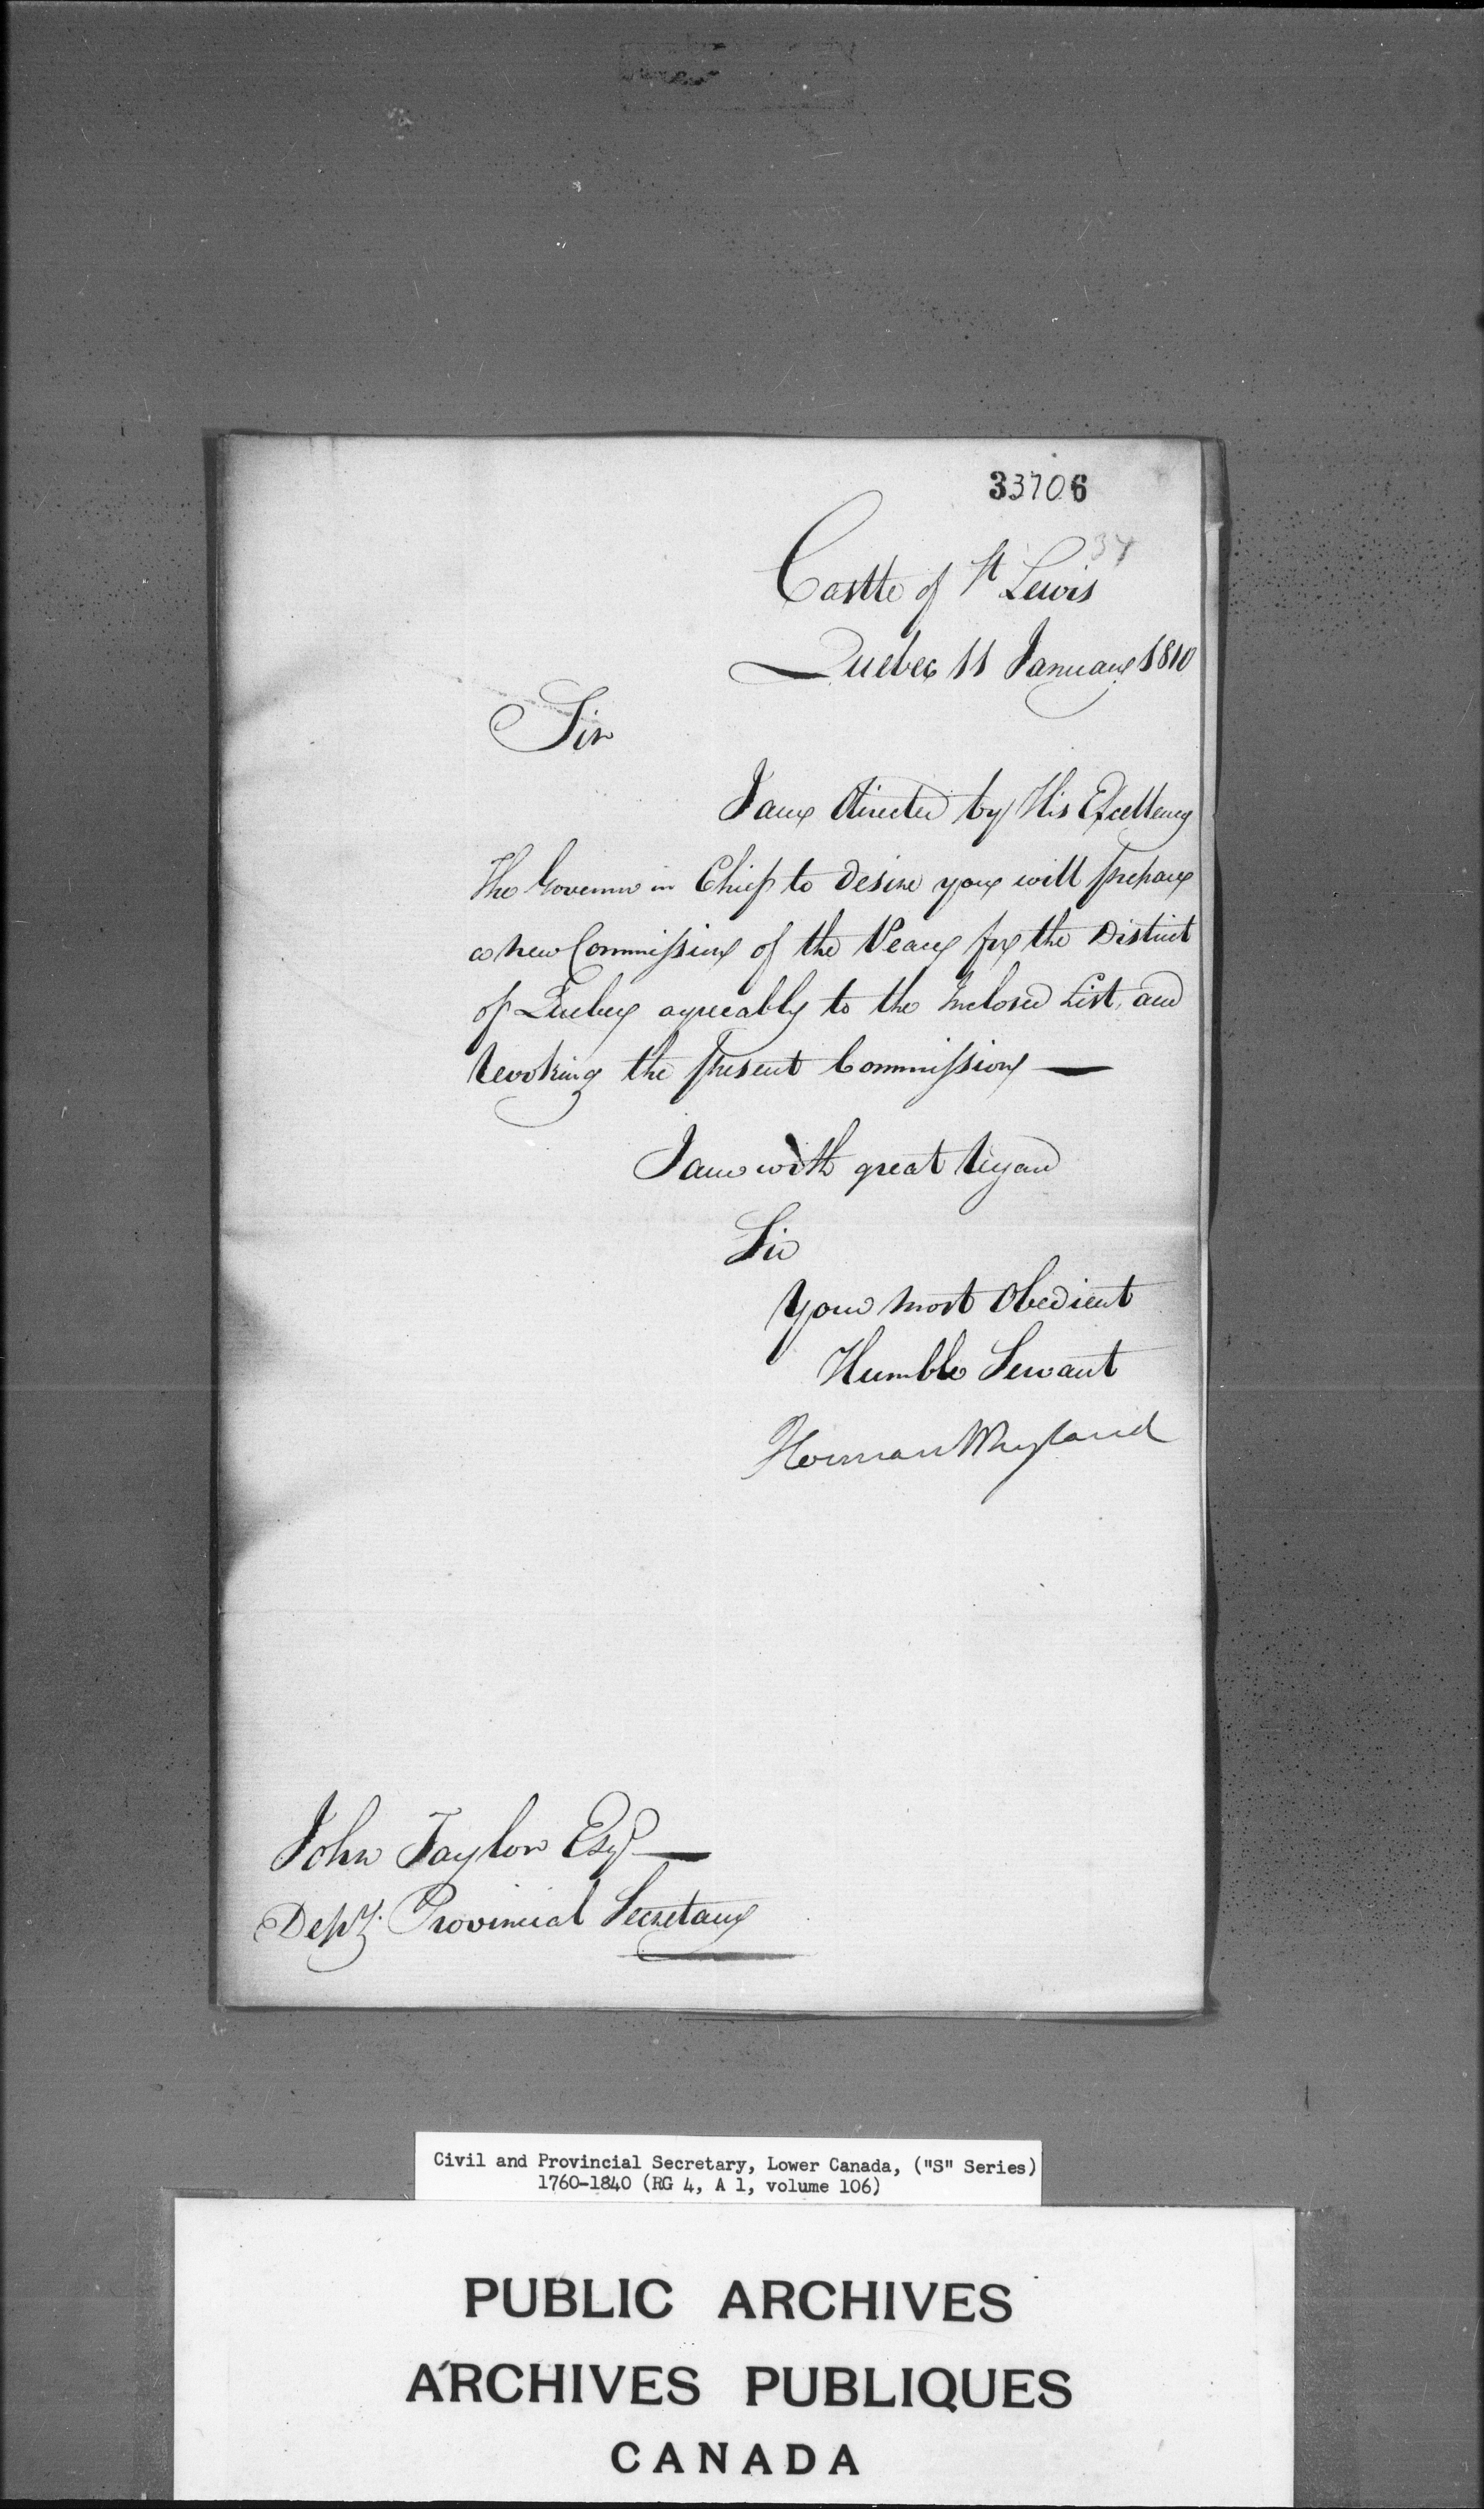 33706
37
Castle of St Lewis
Quebec 11 January 1810
Sir
I am directed by His Excellency
The Governor in Chief to desire you will prepare
a new Commission of the Peace for the District
of Quebec agreeably to the Inclosed List, and
Revoking the present Commission —
I am with great regard
Sir
Your most Obedient
Humble Servant
Herman W Ryland
John Taylor Esqr —
Depy. Provincial Secretary
Civil and Provincial Secretary, Lower Canada, ("S" Series)
1760-1840 (RG 4, A 1, volume 106)
PUBLIC ARCHIVES
ARCHIVES PUBLIQUES
CANADA